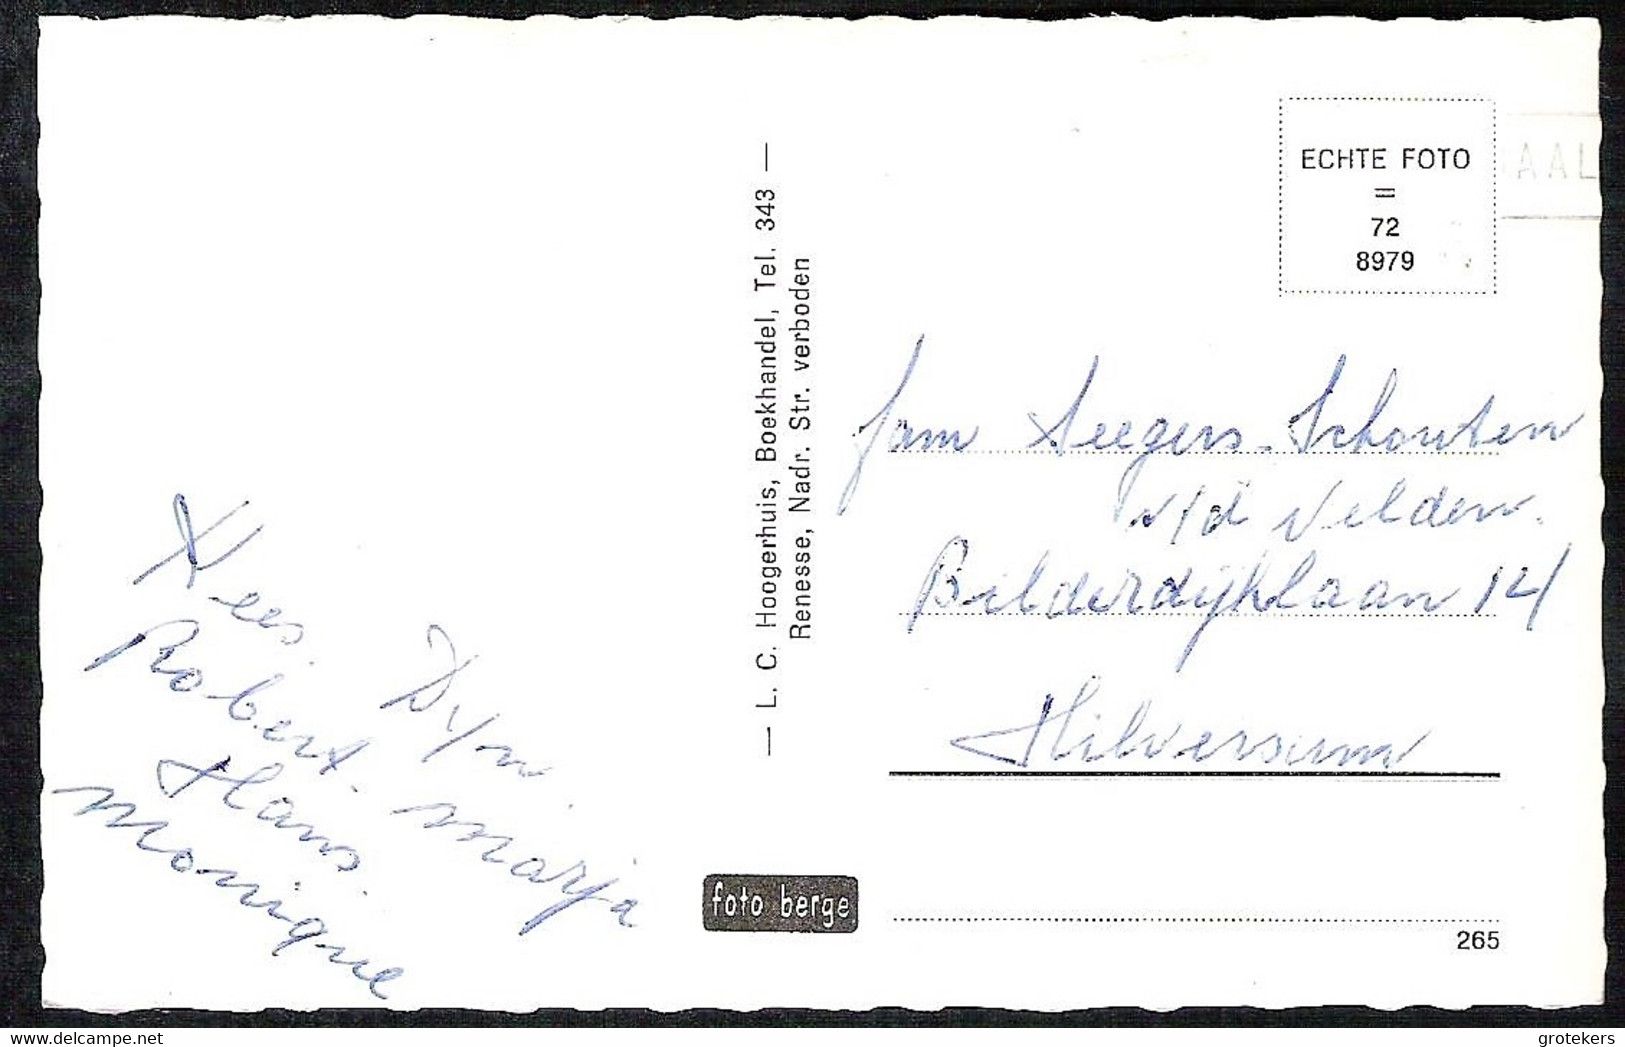 Kees. Dyn.
Robert. Marja
Hans.
Monique
— L. C. Hoogerhuis, Boekhandel, Tel. 343 —
Renesse, Nadr. Str. verboden
foto berge
ECHTE FOTO
=
72
8979
AAL
fam Seegers-Schouten
v/d Velden.
Bilderdijklaan 14
Hilversum
265
grotekers